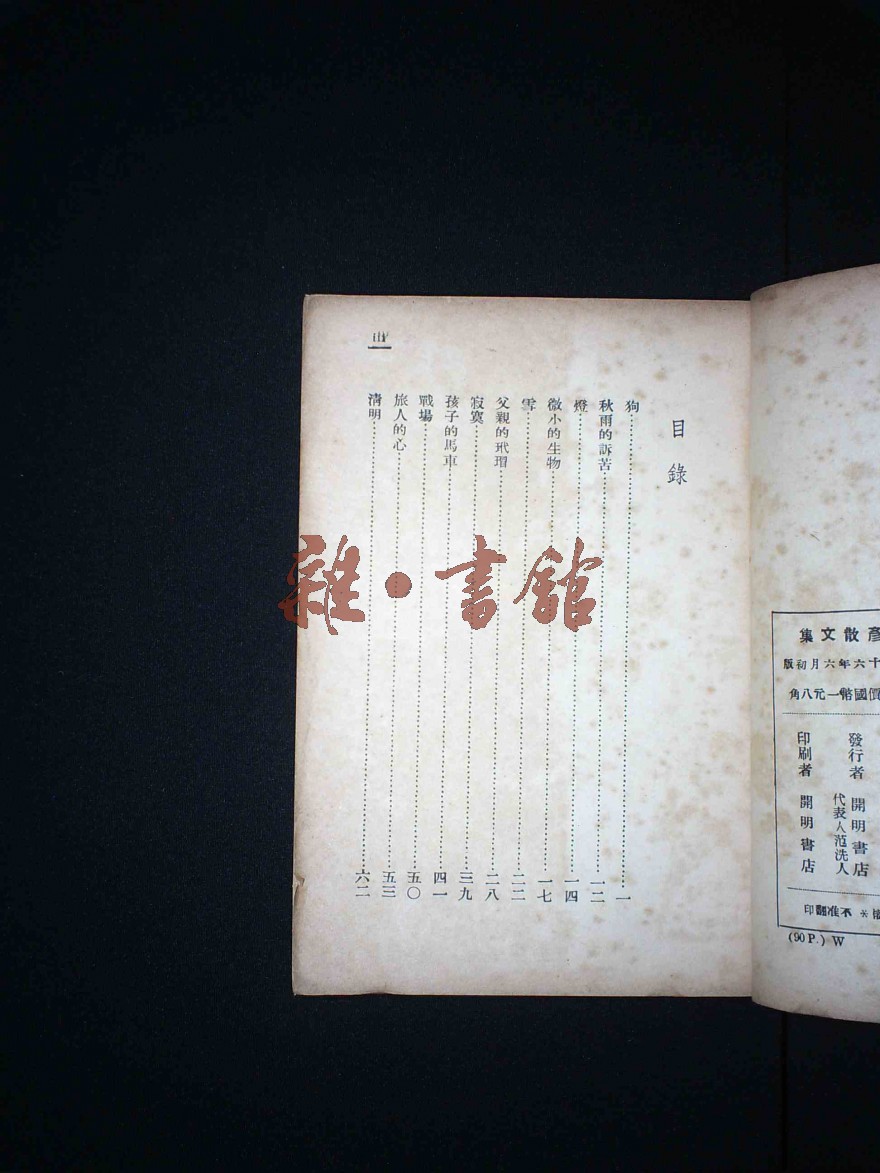 目錄
狗……一
秋雨的訴苦……一二
燈……一四
微小的生物……一七
雪……二二
父親的玳瑁……二八
寂寞……三九
孩子的馬車……四一
戰場……五〇
旅人的心……五三
清明……六二
彥散文集
十六年六月初版
價國幣一元八角
發行者 開明書店
代表人范洗人
印刷者 開明書店
權＊不准翻印
(90 P.) W
雜·書館